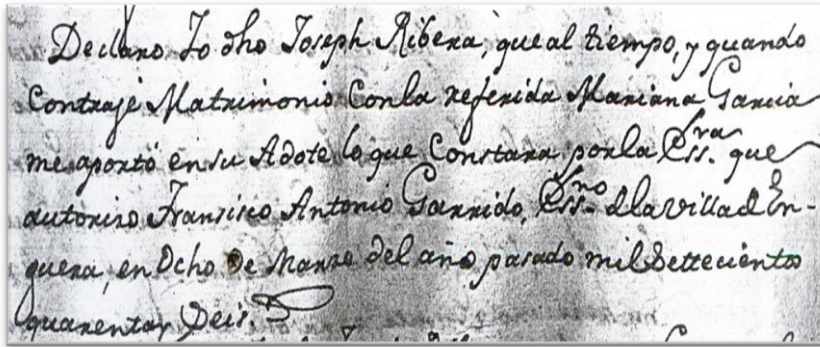 Declaro Yo dho Joseph Ribera, que al tiempo, y quando
Contraje Matrimonio Con la referida Mariana Garcia
me aportó en su Adote lo que Constara por la Ess.ra que
autorizo Francisco Antonio Garrido, Ess.no d la villa d En-
guera, en Ocho De Marzo del año pasado mil Settecientos
quarenta y Seis.